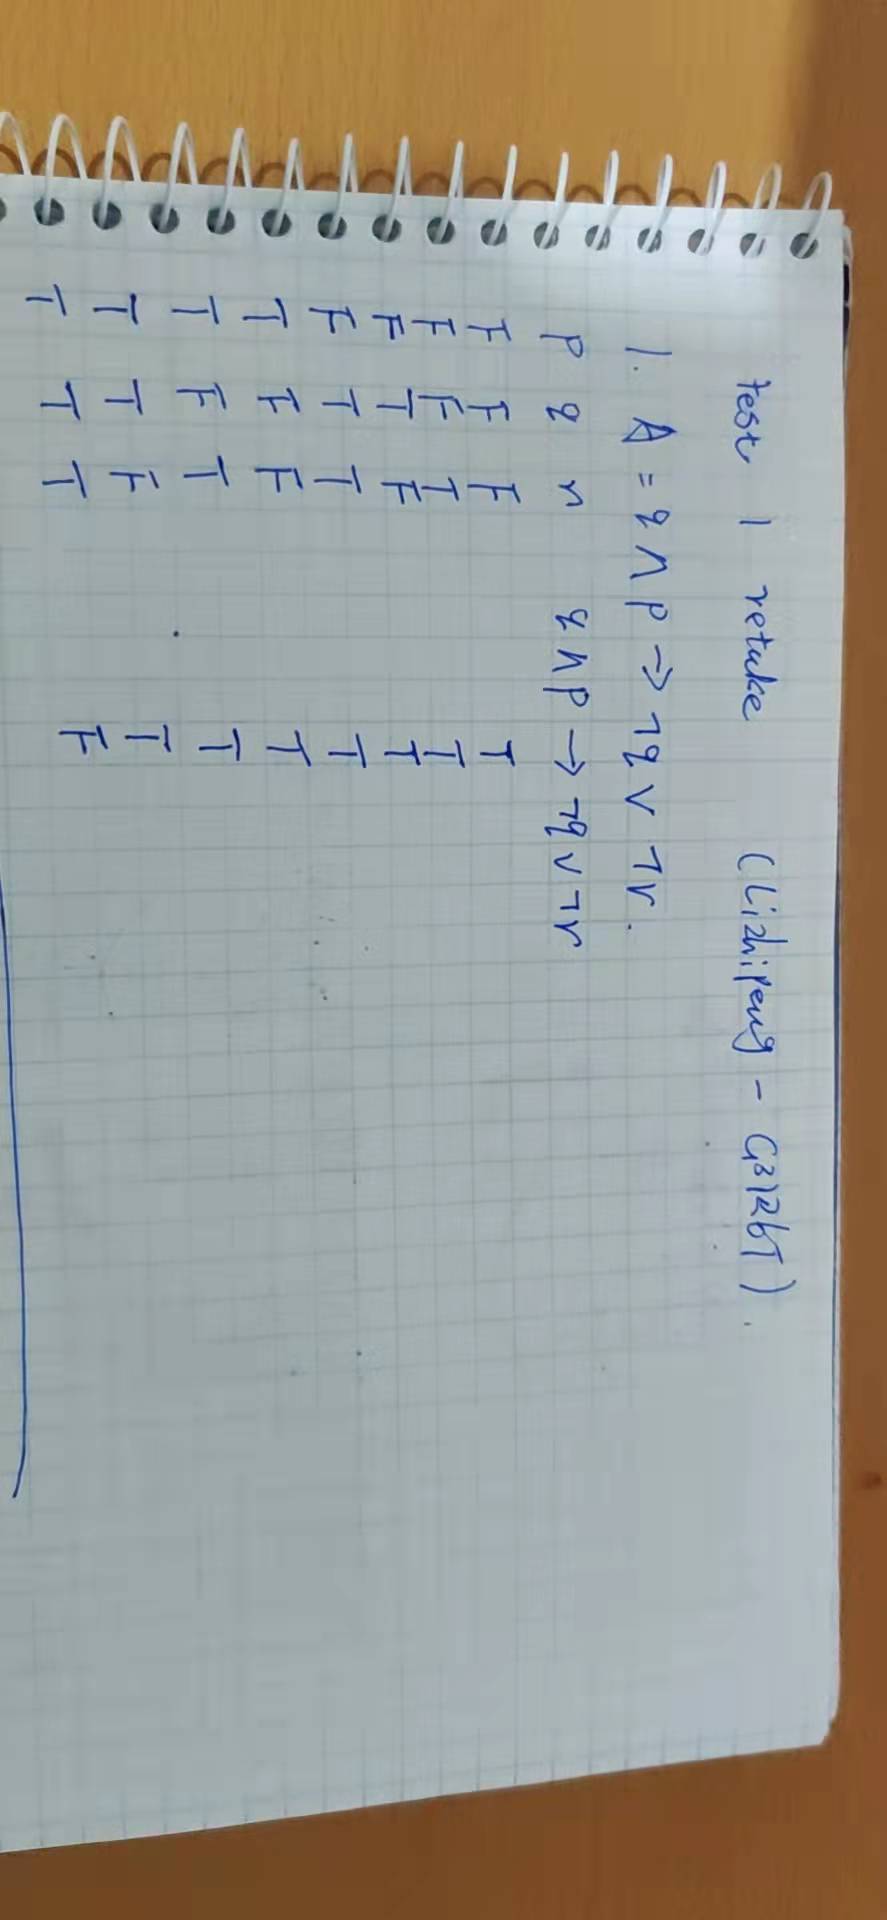 test 1 retake (Lizhipeng - G3126T).
1. A = q ∧ p → ¬q ∨ ¬r.
p q r q ∧ p → ¬q ∨ ¬r
F F F T
F F T T
F T F T
F T T T
T F F T
T F T T
T T F T
T T T F